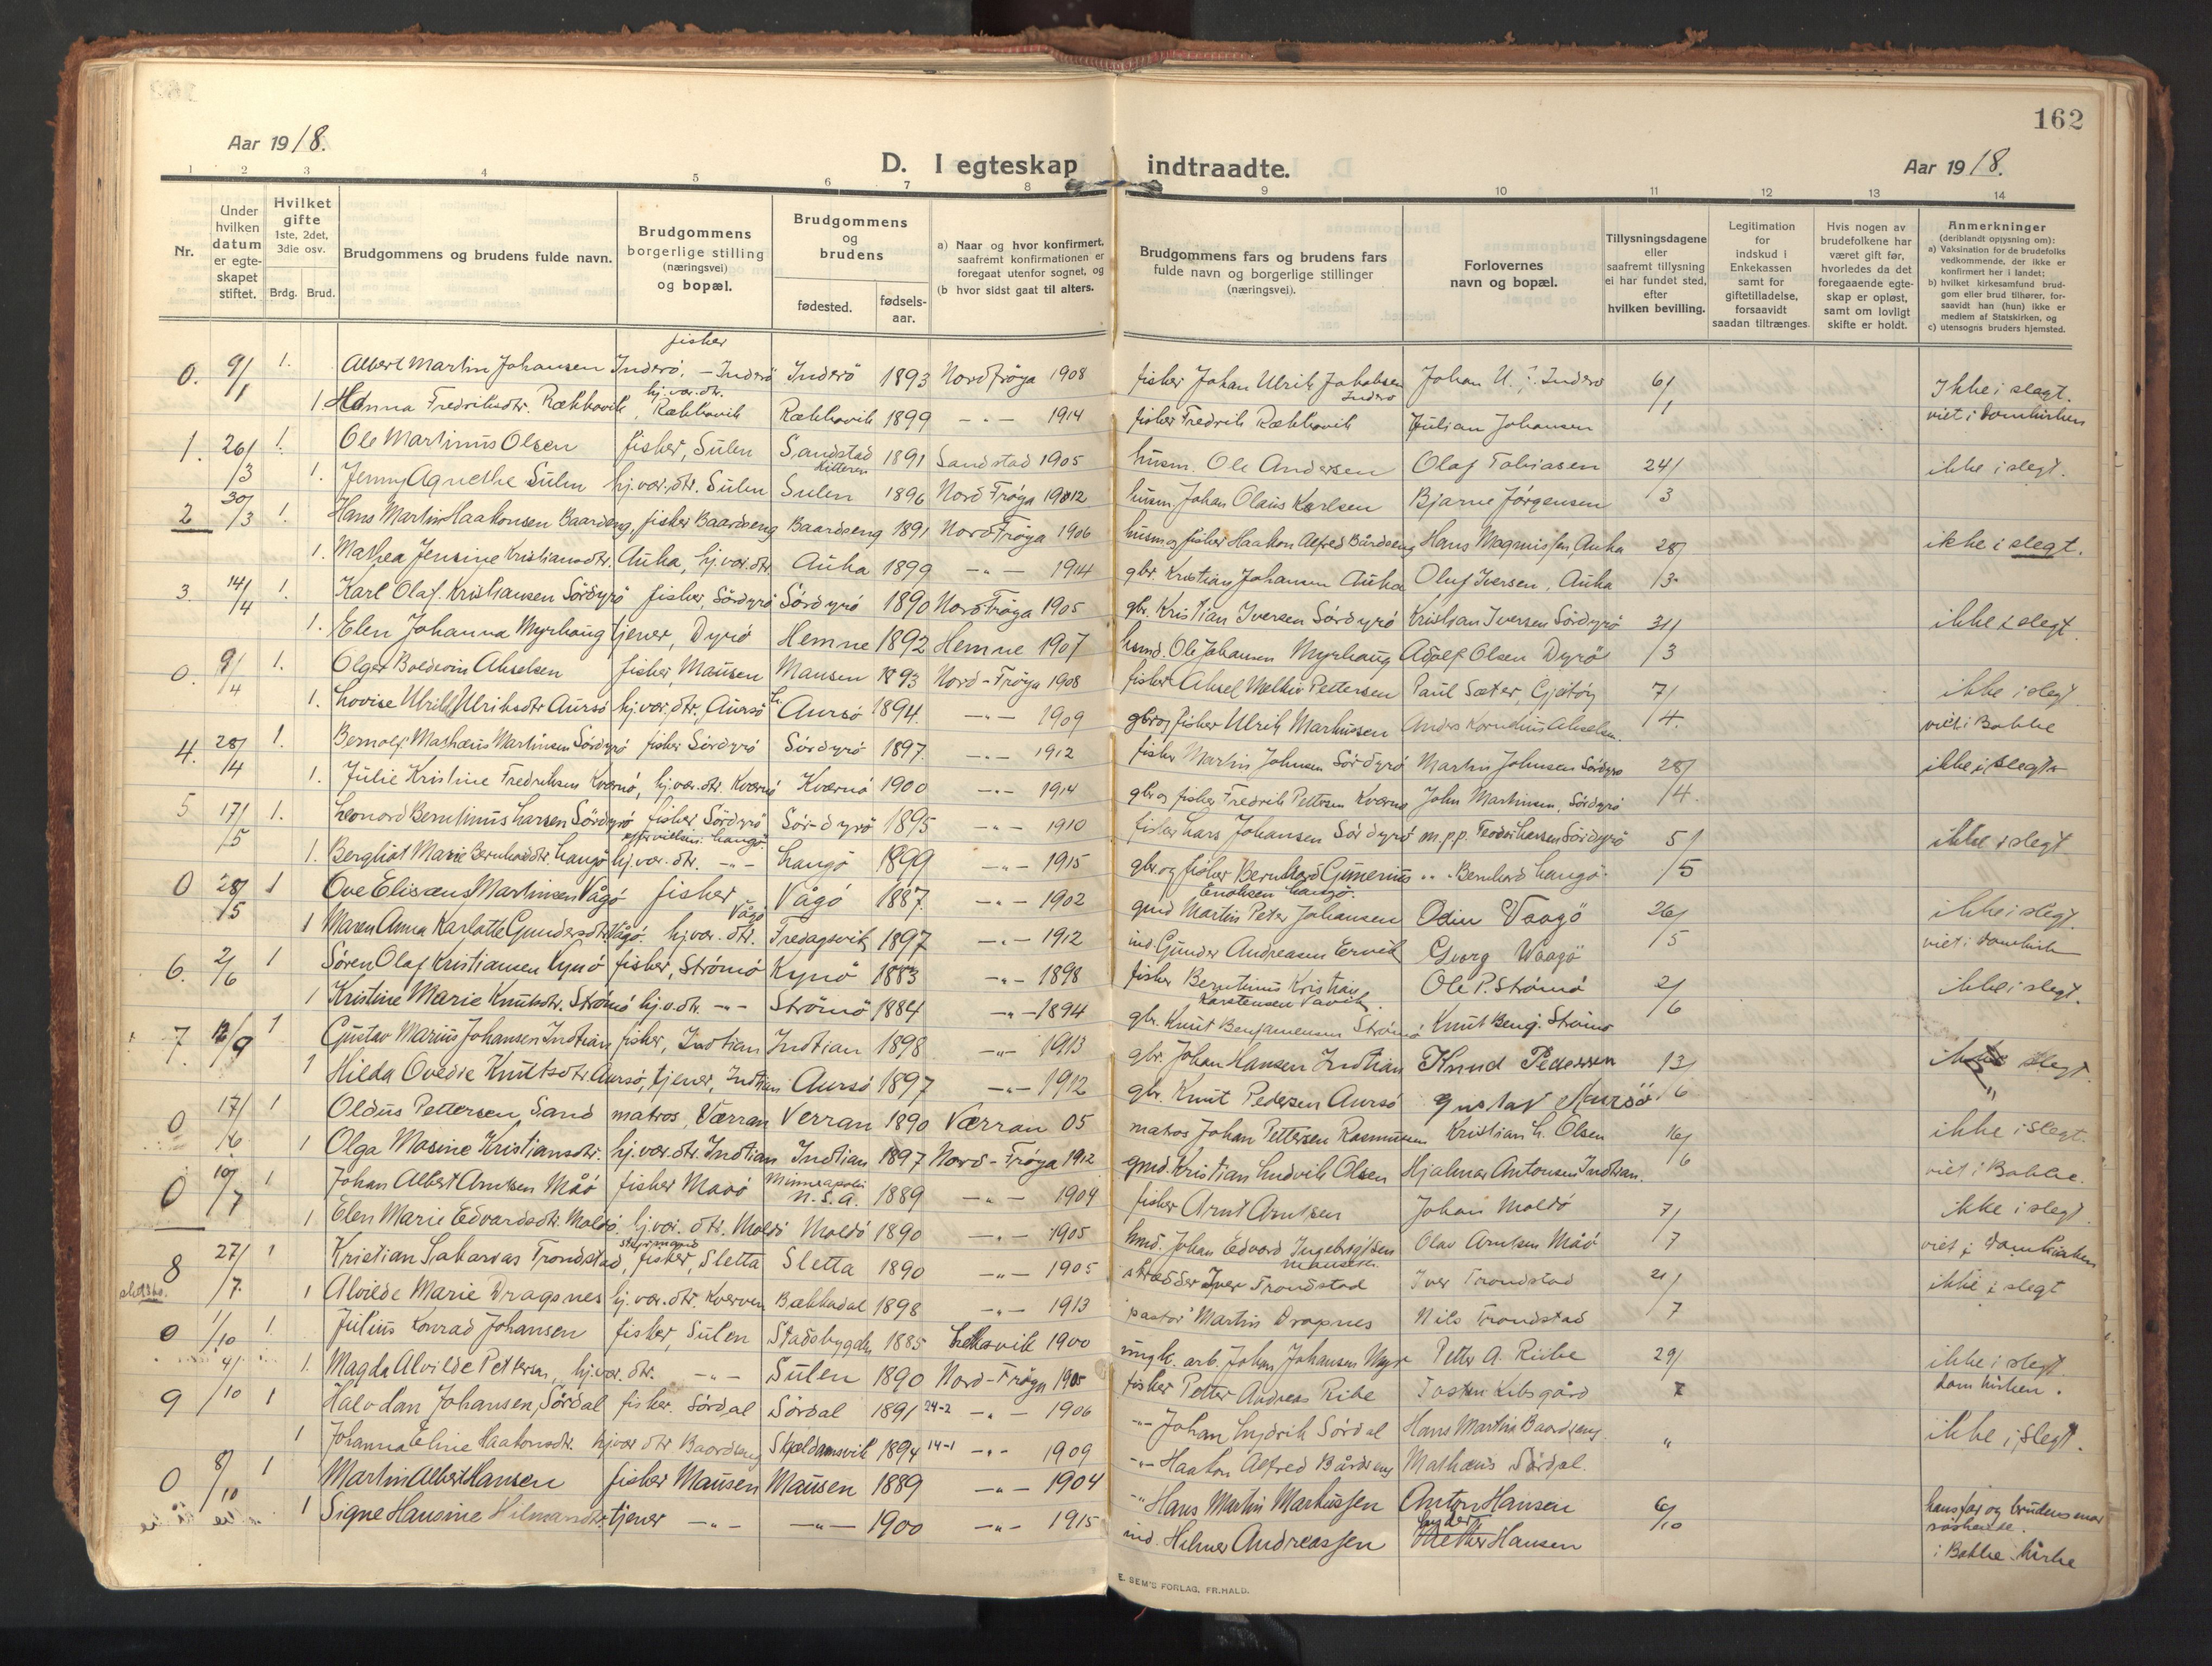 162
Aar 1918.
D. I egteskap indtraadte.
Aar 1918.
1 2 3 4 5 6 7 8 9 10 11 12 13 14
Nr.
Under hvilken datum er egteskapet stiftet.
Hvilket gifte 1ste, 2det, 3die osv.
Brdg. Brud.
Brudgommens og brudens fulde navn.
Brudgommens borgerlige stilling (næringsvei) og bopæl.
Brudgommens og brudens
fødested. fødselsaar.
a) Naar og hvor konfirmert, saafremt konfirmationen er foregaat utenfor sognet, og
(b hvor sidst gaat til alters.
Brudgommens fars og brudens fars fulde navn og borgerlige stillinger (næringsvei).
Forlovernes navn og bopæl.
Tillysningsdagene eller saafremt tillysning ei har fundet sted, efter hvilken bevilling.
Legitimation for indskud i Enkekassen samt for giftetilladelse, forsaavidt saadan tiltrænges.
Hvis nogen av brudefolkene har været gift før, hvorledes da det foregaaende egteskap er opløst, samt om lovligt skifte er holdt.
Anmerkninger (deriblandt opjysning om):
a) Vaksination for de brudefolks vedkommende, der ikke er konfirmert her i landet;
b) hvilket kirkesamfund brudgom eller brud tilhører, forsaavidt han (hun) ikke er medlem af Statskirken, og
c) utensogns bruders hjemsted.
0. 9/1 1. Albert Martin Johansen Inderö, fisher - Inderö Inderö 1893 Nord Fröya 1908 fisher Johan Ulrik Jakobsen Inderö Johan U. Inderö 6/1 Ikke i slegt.
1 Hanna Fredriksdtr. Rækkavik hj.vær.dtr. Rækkavik Rækkavik 1899 -"- 1914 fisher Fredrik Rækkavik Julian Johansen viet i Domkirken
1. 26/3 1. Ole Martinus Olsen fisher, Sulen Sandstad Hitteren 1891 Sandstad 1905 husm. Ole Andersen Olaf Tobiasen 24/3 ikke i slegt.
1. Jenny Agnethe Sulen hj.vær.dtr. Sulen Sulen 1896 Nord Fröya 1912 husm Johan Olaus Karlsen Bjarne Jörgensen
2 30/3 1. Hans Martin Haakonsen Baardseng, fisher Baardseng Baardseng 1891 Nord Fröya 1906 husm og fisher Haakon Alfred Bårdseng Hans Magnussen Auka 28/3 ikke i slegt.
1. Mathea Jensine Kristiansdtr. Auka, hj.vær.dtr. Auka 1899 -"- 1914 gbr. Kristian Johansen Auka Oluf Iversen, Auka
3. 14/4 1. Karl Olaf Kristiansen Sördyrö fisher, Sördyrö Sördyrö 1890 Nord Fröya 1905 gbr. Kristian Iversen Sördyrö Kristian Iversen Sördyrö 31/3 ikke i slegt.
1. Elen Johanna Myrhaug tjener, Dyrö Hemne 1892 Hemne 1907 husmd. Ole Johansen Myrhaug Adolf Olsen Dyrö
0. 9/4 1. Olger Boldevin Akselsen fisher, Mausen Mausen 1893 Nord-Fröya 1908 fisher Aksel Melkior Pettersen Paul Sæter, Gjetöy 7/4. ikke i slegt
1. Lovise Ulrikke Ulriksdtr Aursö hj.vær.dtr. Aursö Aursö 1894. -"- 1909 gbr og fisher Ulrik Markussen Anders Kornelius Akselsen. viet i Bakke
4. 28/4 1. Bernolf Mathæus Martinsen Sördyrö fisher Sördyrö Sördyrö 1897. -"- 1912 fisher Martin Johnsen Sördyrö Martin Johnsen Sördyrö 28/4. ikke i slegt
1. Julie Kristine Fredriksen Kværnö, hj.vær.dtr. Kværnö Kværnö 1900 -"- 1914 gbr og fisher Fredrik Pettersen Kværnö John Martinsen, Sördyrö
5 17/5 1. Leonard Berntinus Larsen Sördyrö fisher Sördyrö Sör-dyrö 1895 -"- 1910 fisher Lars Johansen Sördyrö m.p.p. Teodor Larsen Sördyrö 5/5 ikke i slegt
1. Bergliot Marie Bernhardtr. Langö hj.vær.dtr. -"- Langö 1899 -"- 1915 gbr. og fisher Bernhard Gunerius Enoksen Langö. " Bernhard Langö
0 28/5 1 Ove Elisæus Martinsen Vågö fisher Vågö Vågö 1887. -"- 1902 gmd Martin Peter Johansen Odin Vaagö 26/5 ikke i slegt.
1 Maren Anna Karlotte Gundersdtr. Vågö. hj.vær.dtr. Fredagsvik 1897 -"- 1912 ind. Gunder Andreasen Ervik Georg Waagö viet i Domkirk
6. 2/6 1 Sören Olaf Kristiansen Kynö fisher, Strömö Kynö 1883 -"- 1898 fisher Berntinus Kristian Karstensen Vavik. Ole P. Strömö 2/6 ikke i slegt.
1 Kristine Marie Knutsdtr. Strömö hj.v.dtr. -"- Strömö 1884 -"- 1894 gbr. Knut Benjaminsen Strömö Knut Benj. Strömö
7. 16/9 1 Gustav Marius Johansen Indtian fisher, Indtian Indtian 1898 -"- 1913 gbr. Johan Hansen Indtian Knud Pedersen 13/6 slegt.
1 Hilda Ovedie Knutsdtr. Aursö, tjener, Indtian Aursö 1897 -"- 1912 gbr. Knut Pedersen Aursö Gustav Aursö "
0 17/6 1 Oldus Pettersen Sand matros, Værran Verran 1890 Værran 05 matros Johan Pettersen Rasmussen Kristian L. Olsen 16/6 ikke i slegt.
1 Olga Masine Kristiansdtr. hj.vær.dtr. Indtian Indtian 1897 Nord-Fröya 1912 gmd. Kristian Ludvik Olsen Hjalmar Antonsen Indtian. viet i Bakke.
0 10/7 1 Johan Albert Arntsen Måö fisher Maaö Minneapolis N.S.A. 1889 -"- 1904 fisher Arnt Arntsen Johan Moldö 7/7 ikke i slegt.
1 Elen Marie Edvardsdtr. Moldö hj.vær.dtr. Moldö Moldö 1890 -"- 1905 hmd. Johan Edvard Ingebrigtsen Olav Arntsen Måö viet i Domkirken
8 27/7. 1 Kristian Sakarias Trondstad, fisher, Sletta Sletta 1890 -"- 1905 skrædder Iver Trondstad Iver Trondstad 21/7 ikke i slegt
1 Alvilde Marie Dragsnes hj.vær.dtr. Kverven Bækkadal 1898 -"- 1913 "pastor" Martin Dragsnes Nils Trondstad
0 1/10 1 Julius Konrad Johansen fisher, Sulen Stadsbygden 1885 Leksvik 1900 ungk. arb. Johan Johansen Petter A. Ribe 29/7 ikke i slegt.
1. Magda Alvilde Pettersen, hj.vær.dtr. -"- Sulen 1890 Nord-Fröya 1905 fisher Petter Andreas Ribe Tosten Kibsgård Domkirken.
9 4/10 1 Halvdan Johansen, Sördal fisher. Sördal Sördal 1891 24-2 -"- 1906 -"- Johan Hans Martin Baardseng. " ikke i slegt.
1 Johanna Eline Haakonsdtr. hj.vær dtr Baardseng Skjeldamsvik 1894 14-1 -"- 1909 -"- Haakon Alfred Bårdseng Mathæus Sördal.
0 8/10 1 Martin Albert Hansen fisher Mausen Mausen 1889 -"- 1904 -"- Hans Martin Markussen Anton Hansen 6/10 hans far og brudens mor söskende.
1 Signe Hansine Hilmarsdtr. tjener -"- -"- 1900 -"- 1915 ind. Hilmer Andreassen Hansen i Bakke kirke
E. SEM'S FORLAG, FR.HALD.